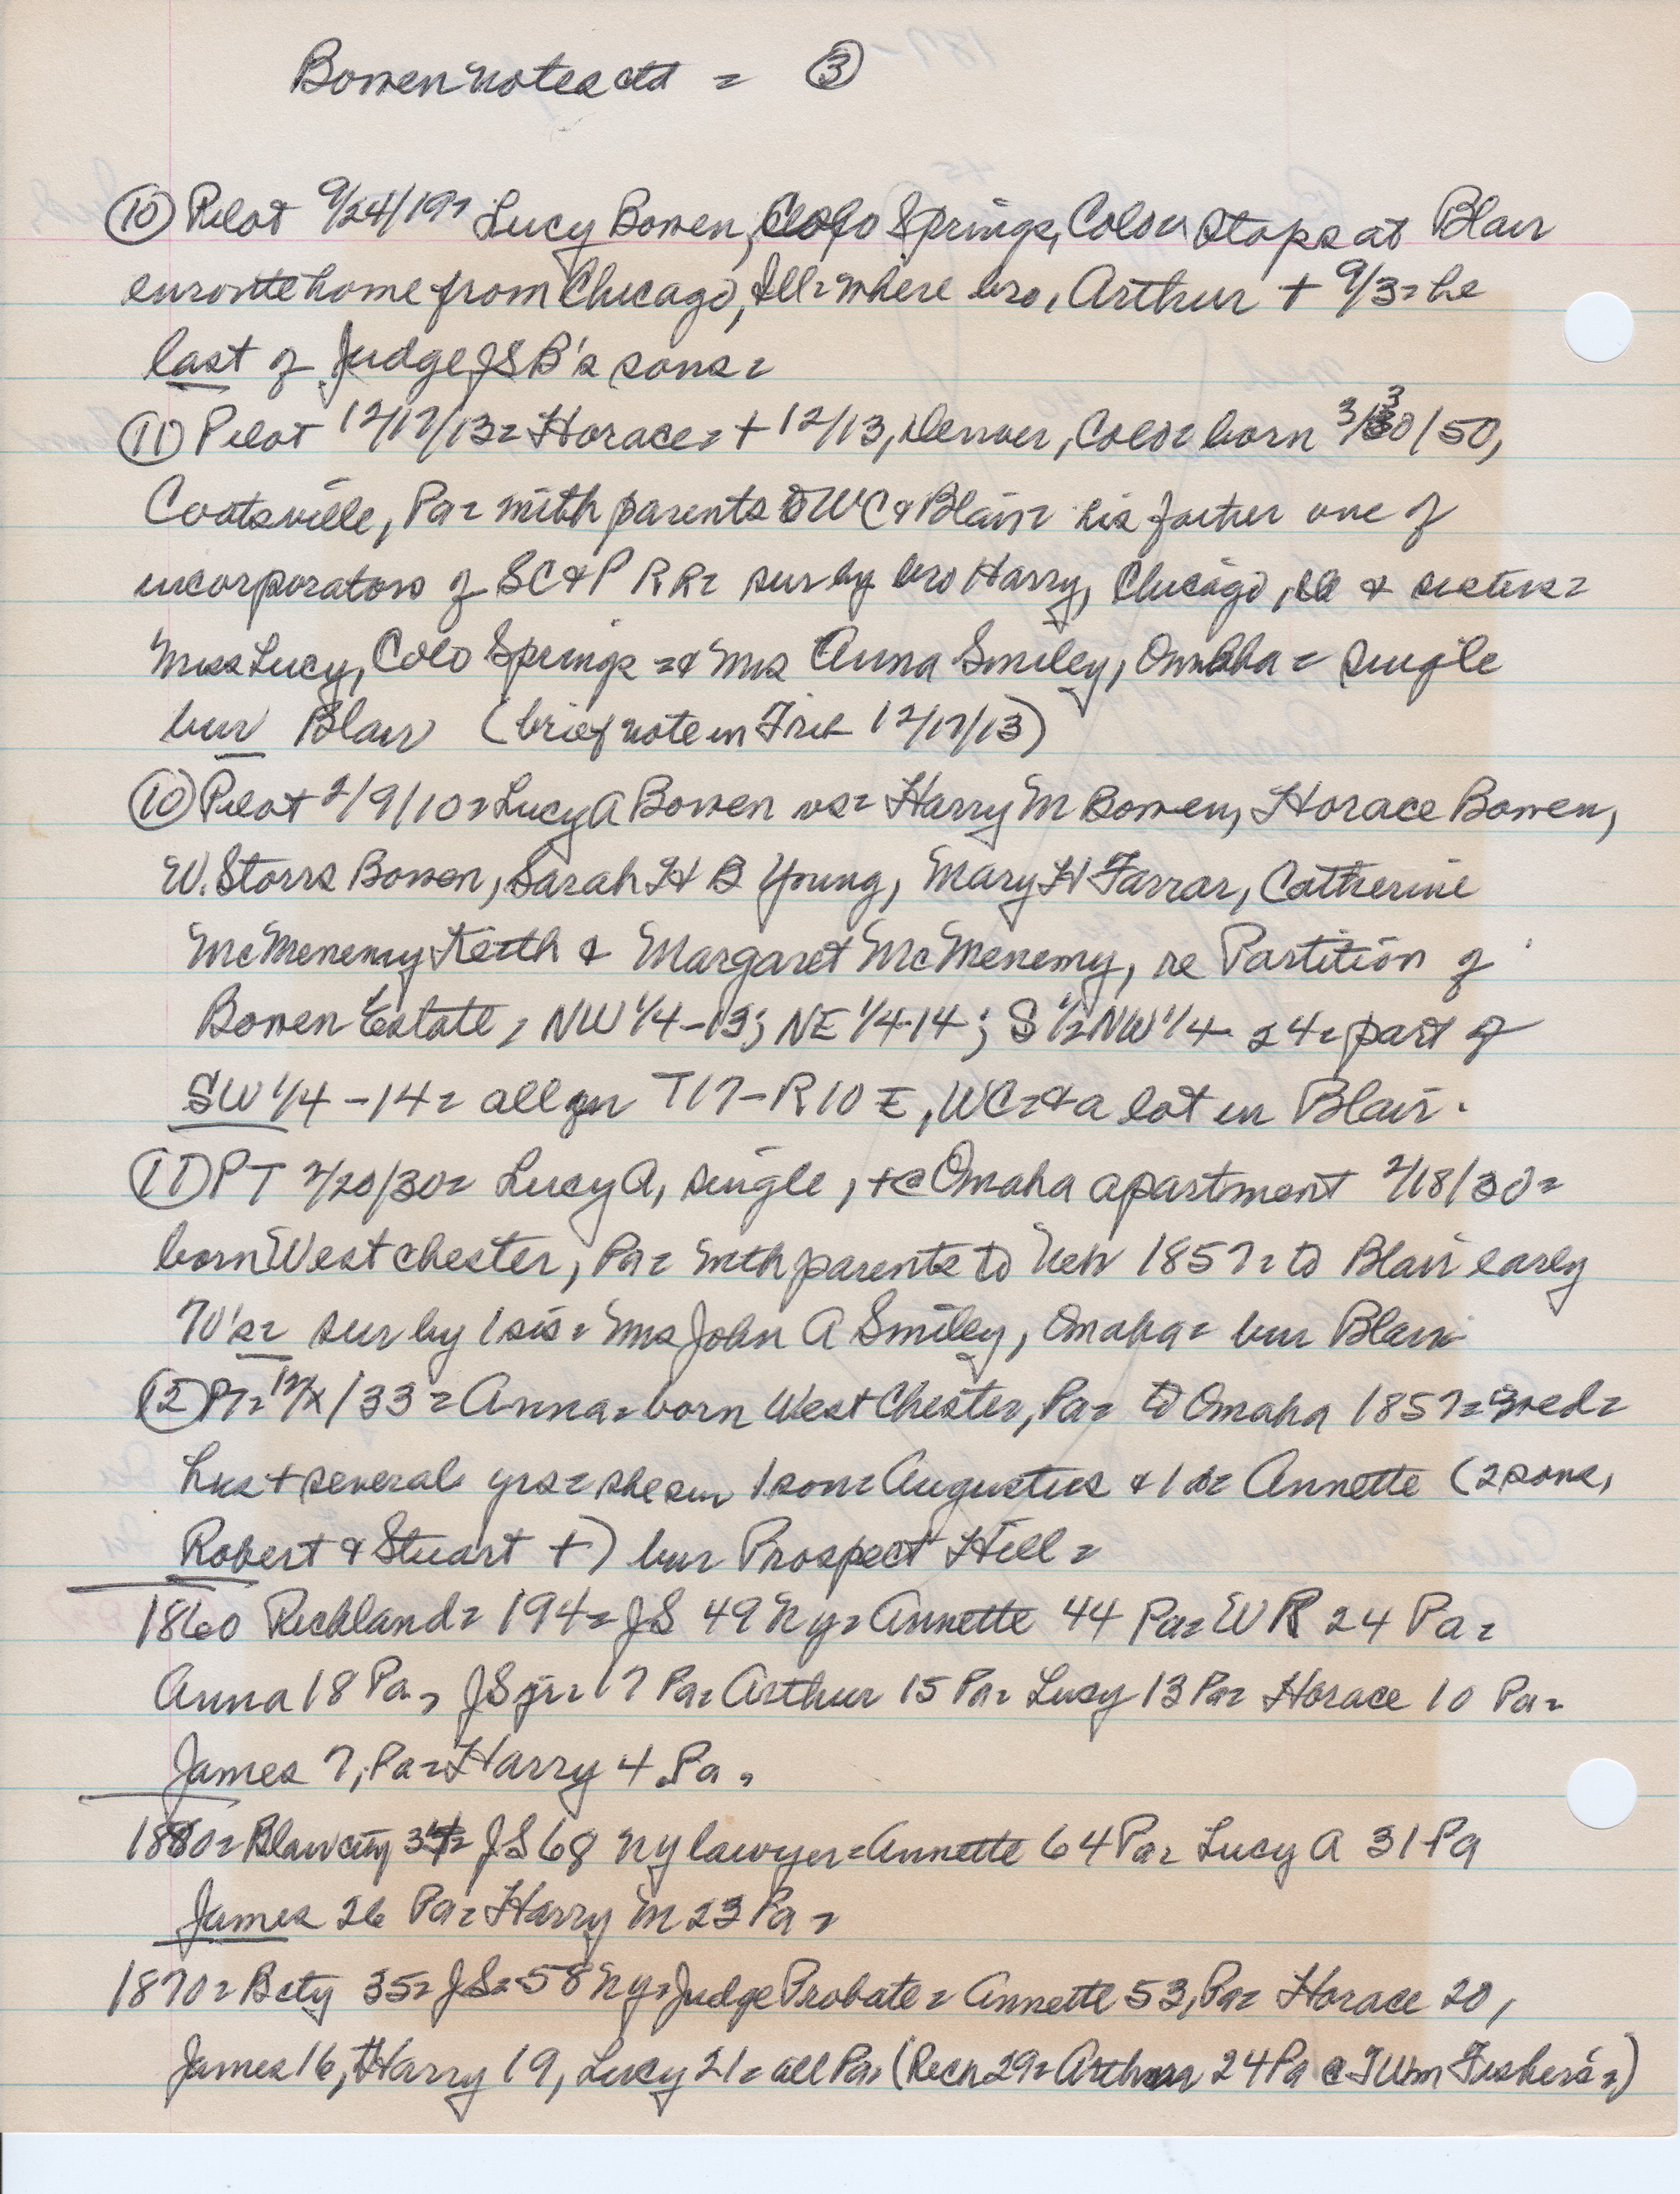 Bowen notes ctd = ③
⑩ Pilot 9/24/19= Lucy Bowen, Colo Springs, Colo= stops at Blair
enroute home from Chicago, Ill= where bro, Arthur + 9/3= he
last of Judge JSB's sons=
⑪ Pilot 12/17/13= Horace= + 12/13, Denver, Colo= born 3/30/50,
Coatsville, Pa= with parents to WC & Blair= his father one of
incorporators of SC&P RR= sur by bro Harry, Chicago, Ill & sisters=
Miss Lucy, Colo Springs =& Mrs Anna Smiley, Omaha= single
bur Blair (brief note in Trib 12/17/13)
⑩ Pilot 2/9/10= Lucy A Bowen vs= Harry M Bowen, Horace Bowen,
W. Storrs Bowen, Sarah H B Young, Mary H Farrar, Catherine
McMenemy Keith & Margaret McMenemy, re Partition of
Bowen Estate, NW 1/4-13; NE 1/4-14; S 1/2 NW 1/4 24= part of
SW 1/4 -14= all in T17-R10E, WC=& a lot in Blair.
⑪ PT 2/20/30= Lucy A, single, + @ Omaha apartment 2/18/30=
born West Chester, Pa= with parents to Neb 1857= to Blair early
70's= sur by 1 sis= Mrs John A Smiley, Omaha= bur Blair
⑫ PT= 12/X/33= Anna= born West Chester, Pa= to Omaha 1857= wed=
hus + several yrs= she sur 1 son= Augustus & 1 d= Annette (2 sons,
Robert & Stuart +) bur Prospect Hill=
1860 Richland= 194= JS 49 Ny= Annette 44 Pa= WR 24 Pa=
Anna 18 Pa, JS jr= 17 Pa= Arthur 15 Pa= Lucy 13 Pa= Horace 10 Pa=
James 7, Pa= Harry 4 Pa,
1880= Blair city 34= JS 68 Ny lawyer= Annette 64 Pa= Lucy A 31 Pa
James 26 Pa= Harry M 23 Pa=
1870= Bcty 35= JS= 58 Ny= Judge Probate= Annette 53, Pa= Horace 20,
James 16, Harry 19, Lucy 21= all Pa, (Rich 29= Arthur 24 Pa @ Wm Fisher's=)